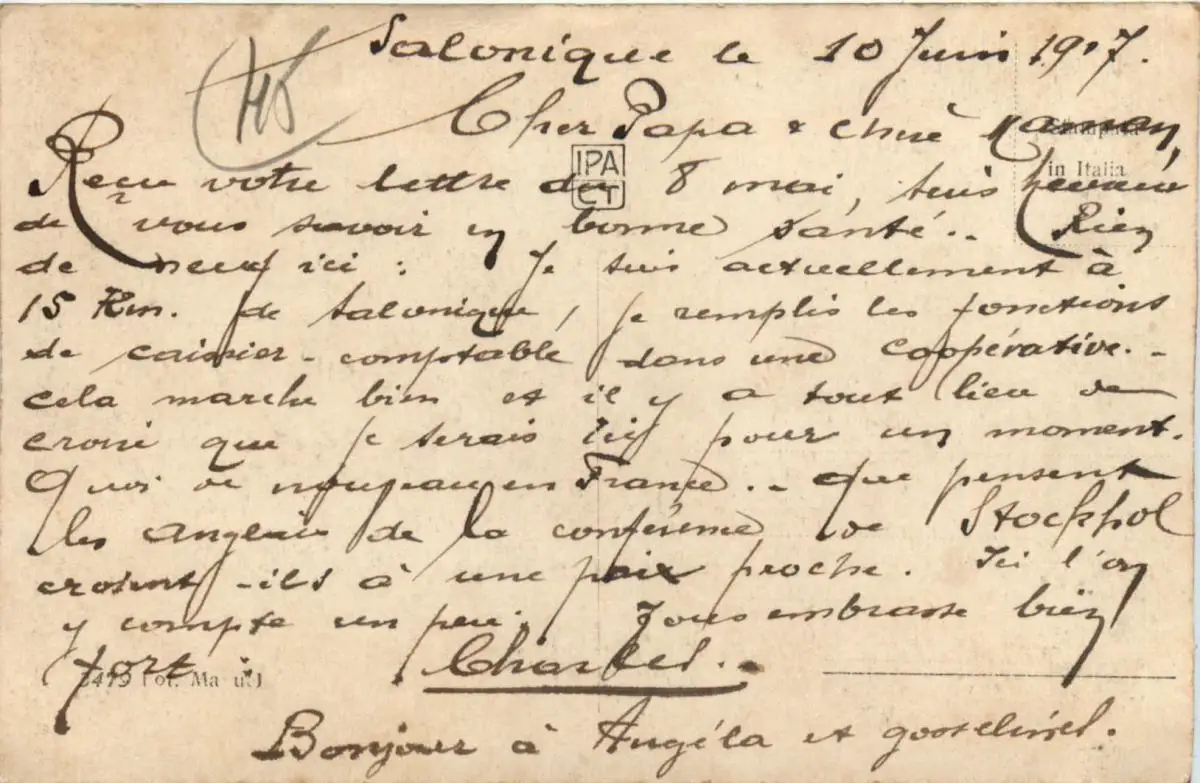 Salonique le 10 Juin 1917.
Cher Papa & chère Maman,
Reçu votre lettre du 8 mai, suis heureux
de vous savoir en bonne santé.. Rien
de neuf ici : Je suis actuellement à
15 Km. de Salonique, je remplis les fonctions
de caissier-comptable dans une Coopérative.-
cela marche bien et il y a tout lieu de
croire que je serais ici pour un moment.
Quoi de nouveau en France..- que pensent
les anglais de la conférence de Stockhol
croient-ils à une paix proche. Ici l'on
y compte un peu. Vous embrasse bien
fort.
Charles.-
Bonjour à Angéla et
IPA
CT
in Italia